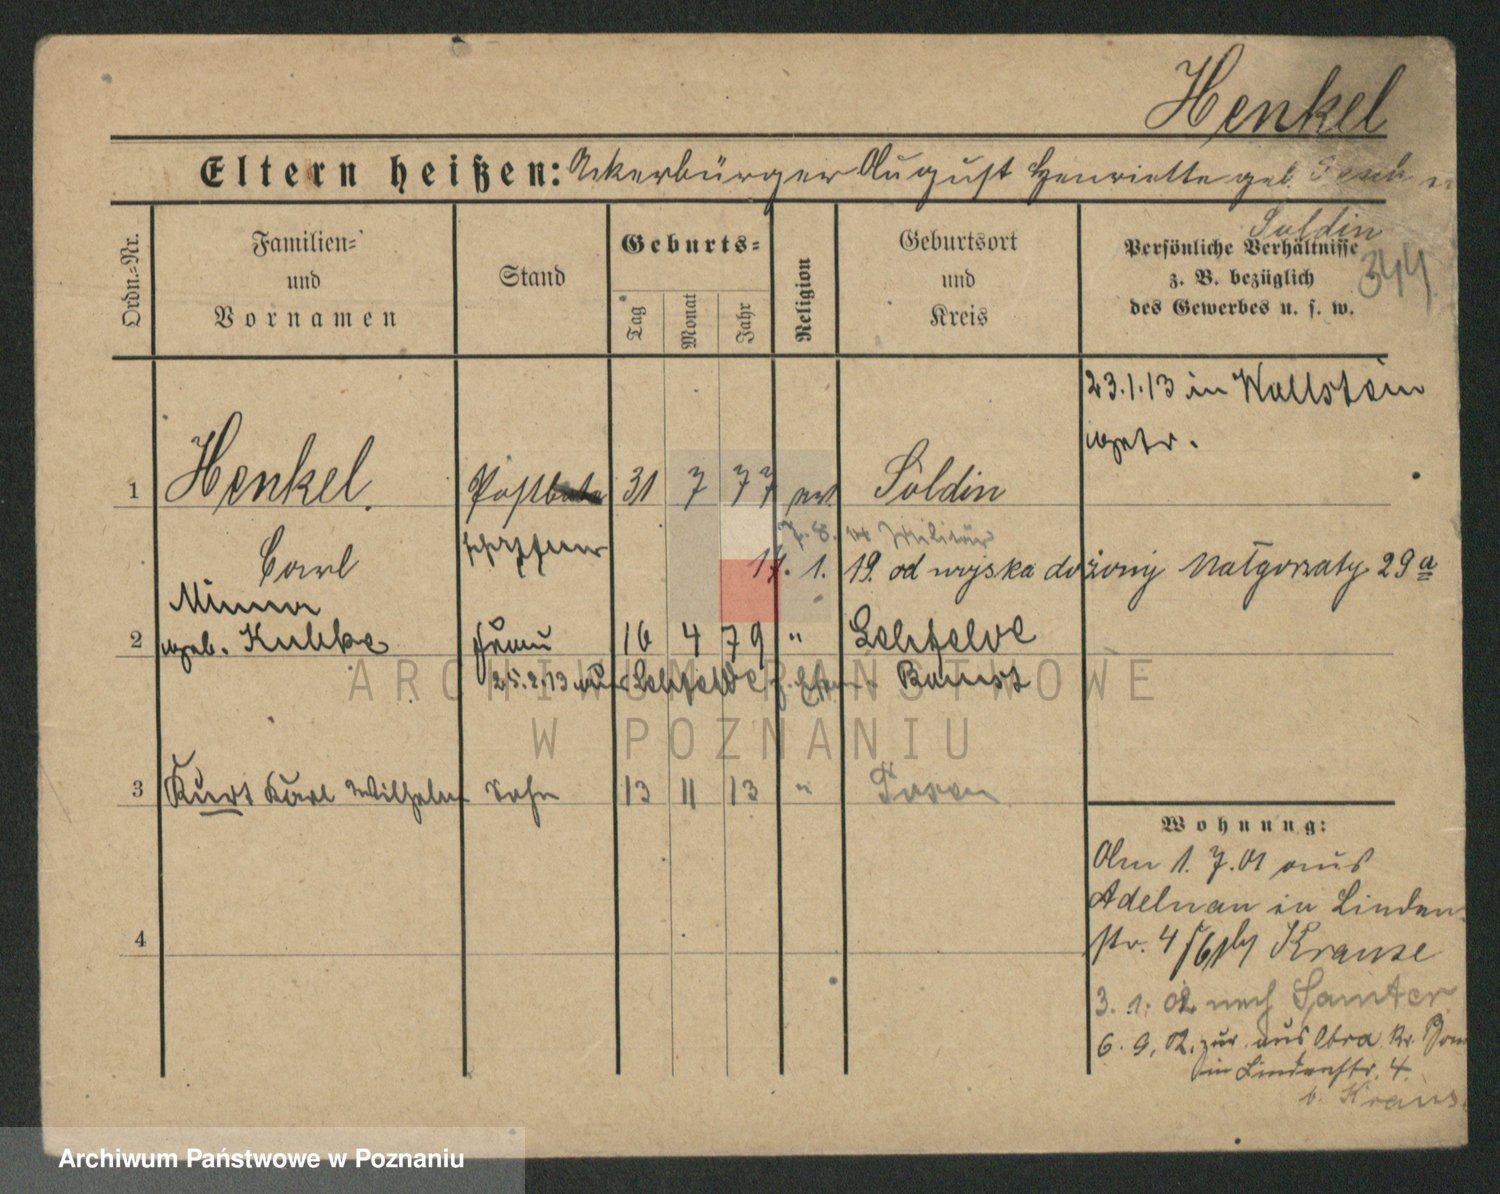 Henkel
Eltern heißen: Ackerbürger August Henriette geb.
Soldin
344
Ordn.-Nr.
Familien-
und
Vornamen
Stand
Geburts-
Tag
Monat
Jahr
Religion
Geburtsort
und
Kreis
Persönliche Verhältnisse
z. B. bezüglich
des Gewerbes u. s. w.
23.1.13 in Wollstein
getr.
1 Henkel Postbote 31 7 77 ev. Soldin
schaffner
7. 8. 14 Militär
Carl 17. 1. 19. od wojska do żony Małgorzaty 29a
Minna
2 geb. Kubke Frau 16 4 79 " Lehfelde
25.2.13 aus Lehfelde Bomst
3 Kurt Karl Wilhelm Sohn 13 11 13 " Posen
4
Wohnung:
Am 1. 7. 01 aus
Adelnau in Linden-
str. 4 Krause
3. 1. 02 nach Samter
6. 9. 02. zur. aus Obra Kr. Bom
in Lindenstr. 4.
b. Kraus
ARCHIWUM PAŃSTWOWE
W POZNANIU
Archiwum Państwowe w Poznaniu